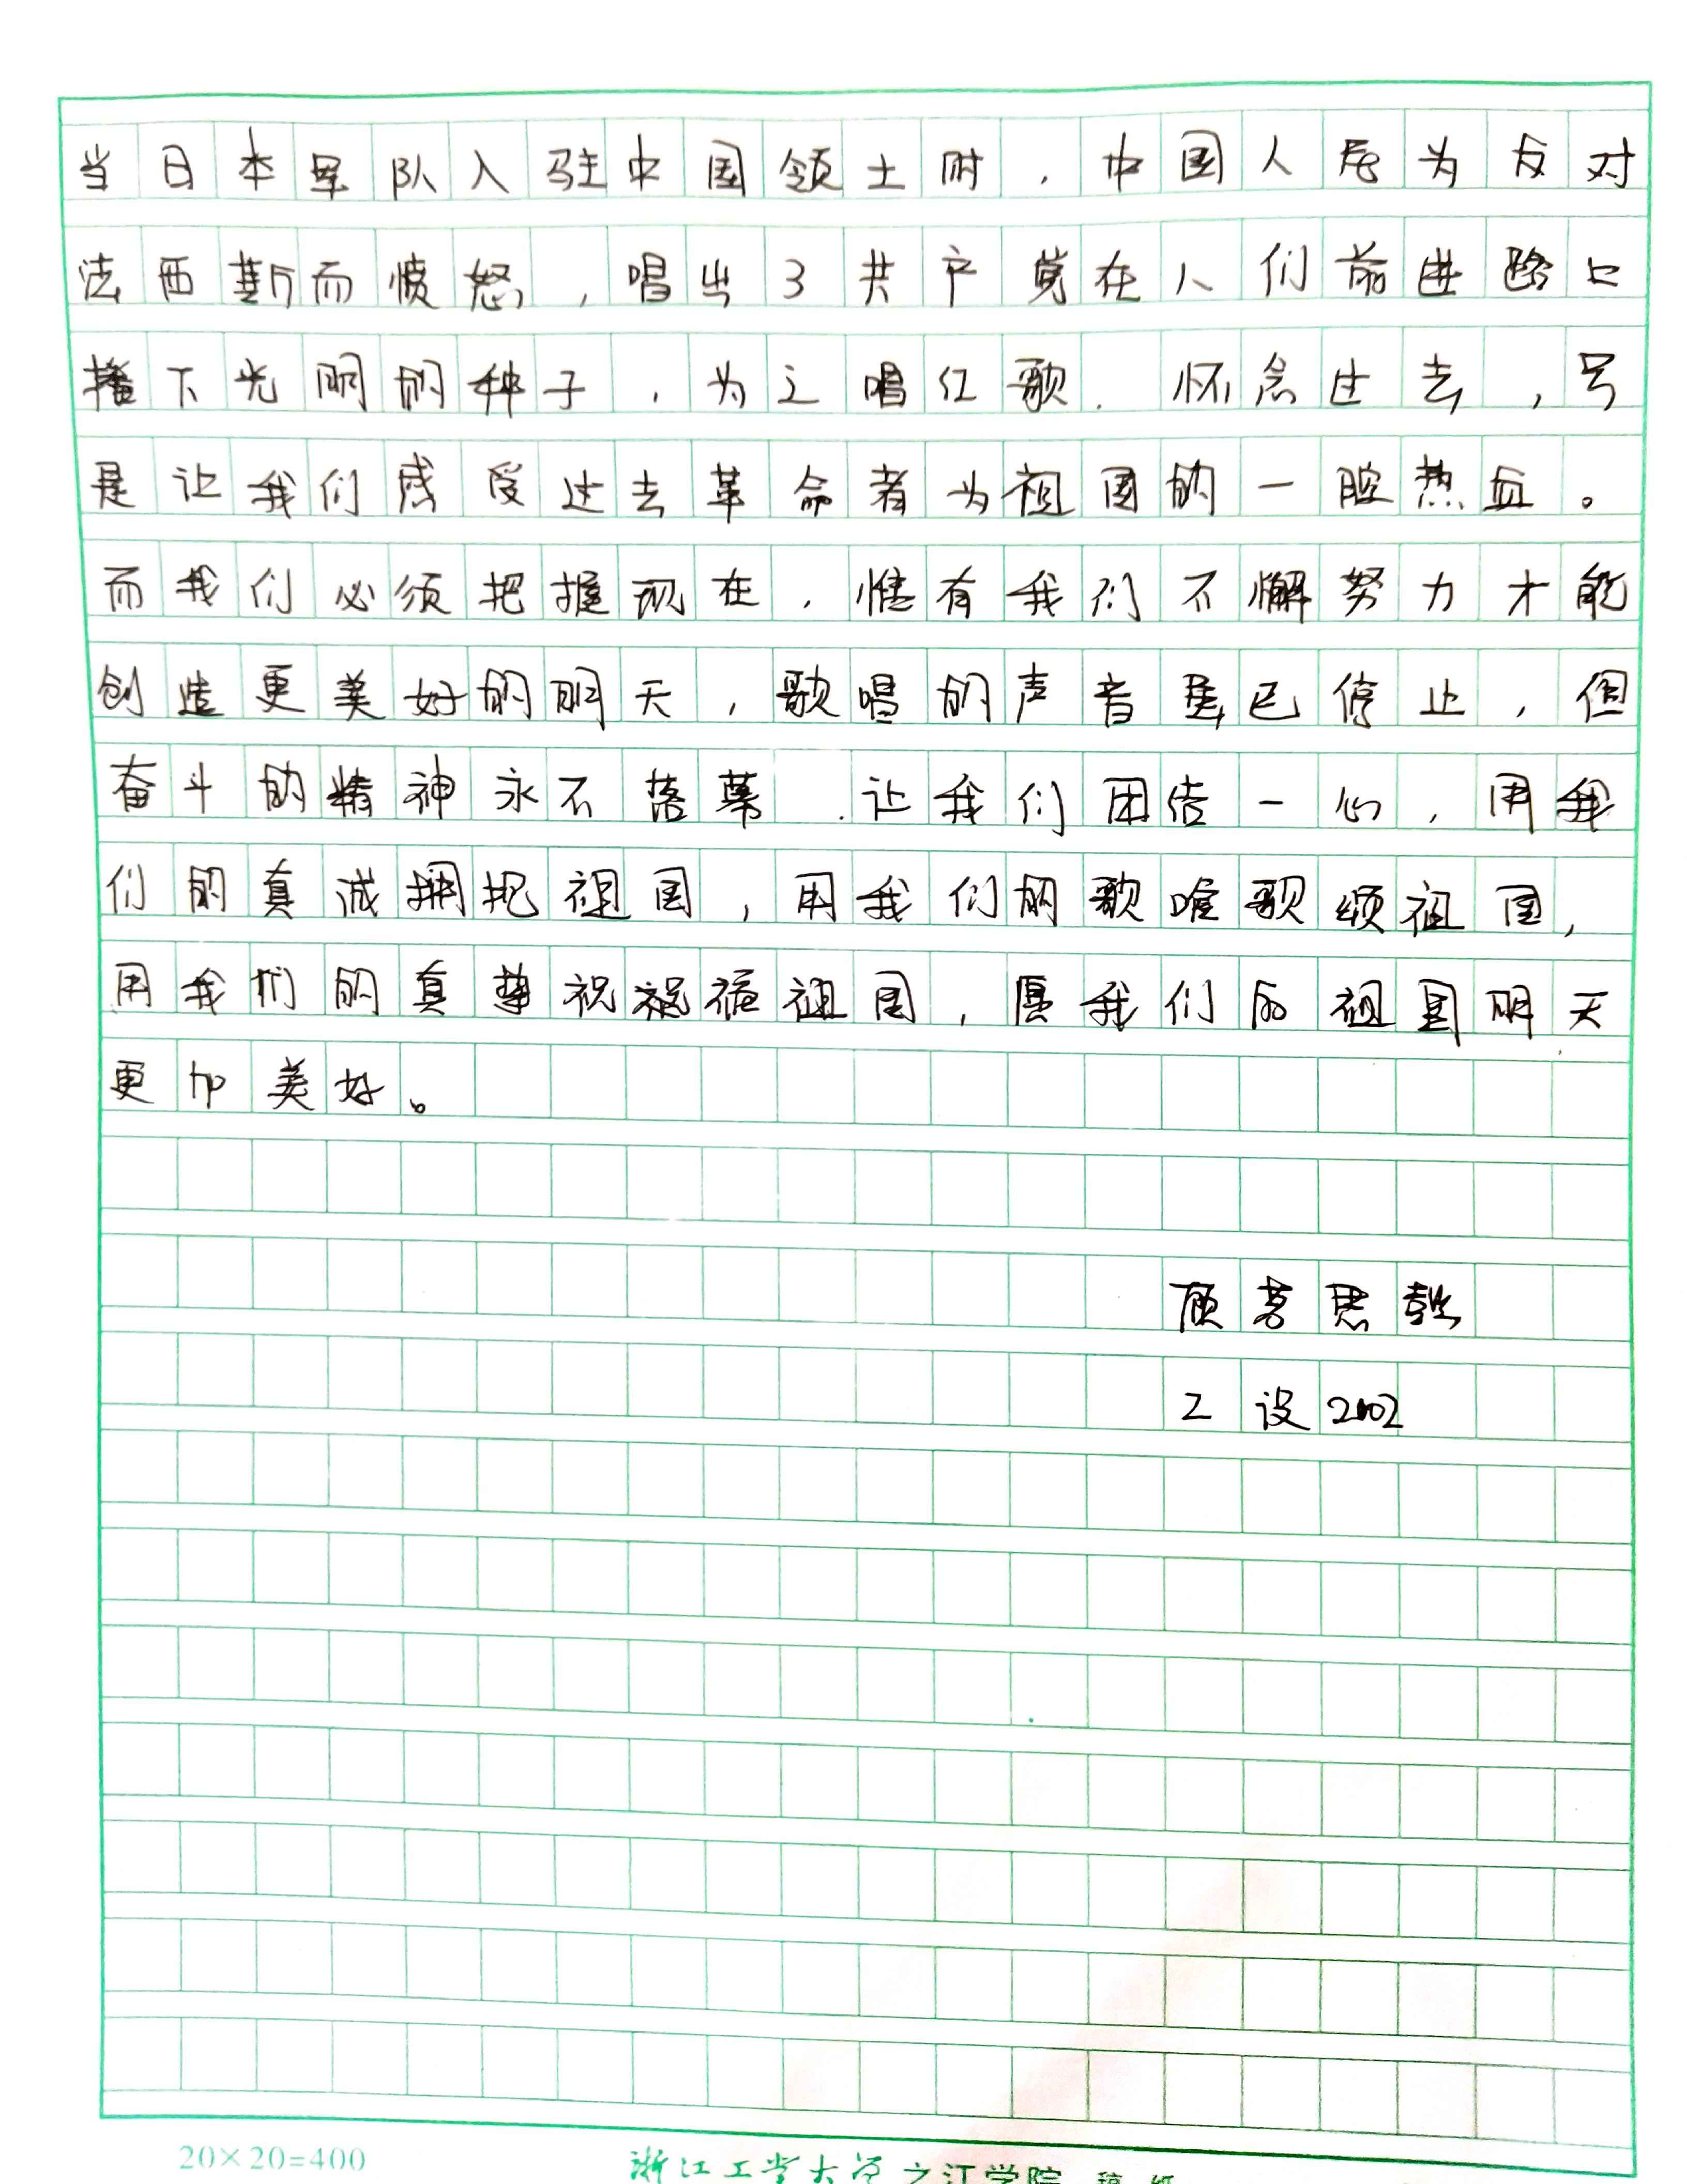 当日本军队入驻中国领土时，中国人民为反对
法西斯而愤怒，唱出了共产党在人们前进路上
播下光明的种子，为之唱红歌．怀念过去，
是让我们感受过去革命者为祖国的一腔热血。
而我们必须把握现在，惟有我们不懈努力才能
创造更美好的明天，歌唱的声音虽已停止，但
奋斗的精神永不落幕．让我们团结一心，用我
们的真诚拥抱祖国，用我们的歌喉歌颂祖国，
用我们的真挚祝福祖国，愿我们的祖国明天
更加美好。
顾 思
工设2002
20×20=400
浙江工业大学之江学院 稿纸